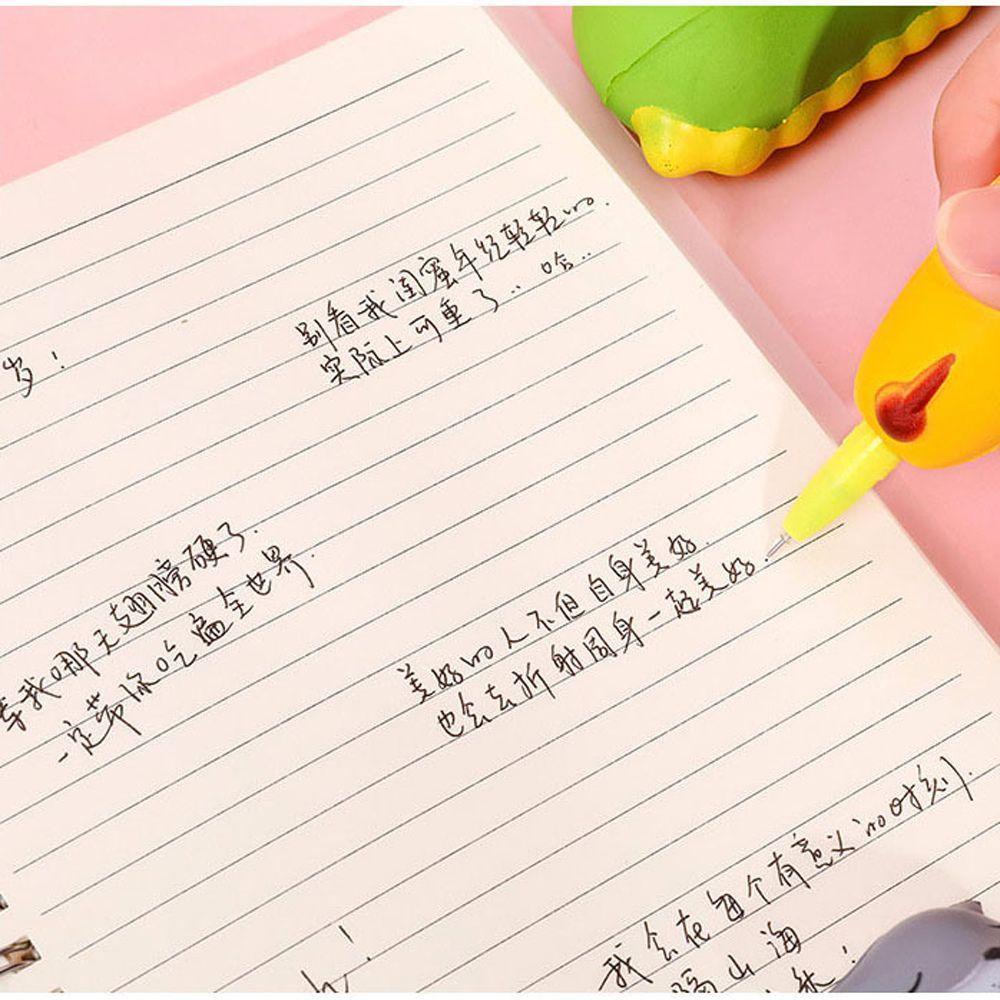 别看我闺蜜年纪轻轻的.
实际上可重了.. 哈..
岁!
等我哪天翅膀硬了.
一定带你吃遍全世界.
美好的人不但自身美好.
也会去折射周身一起美好.
我会在每个有意义的时刻.
隔山海
!